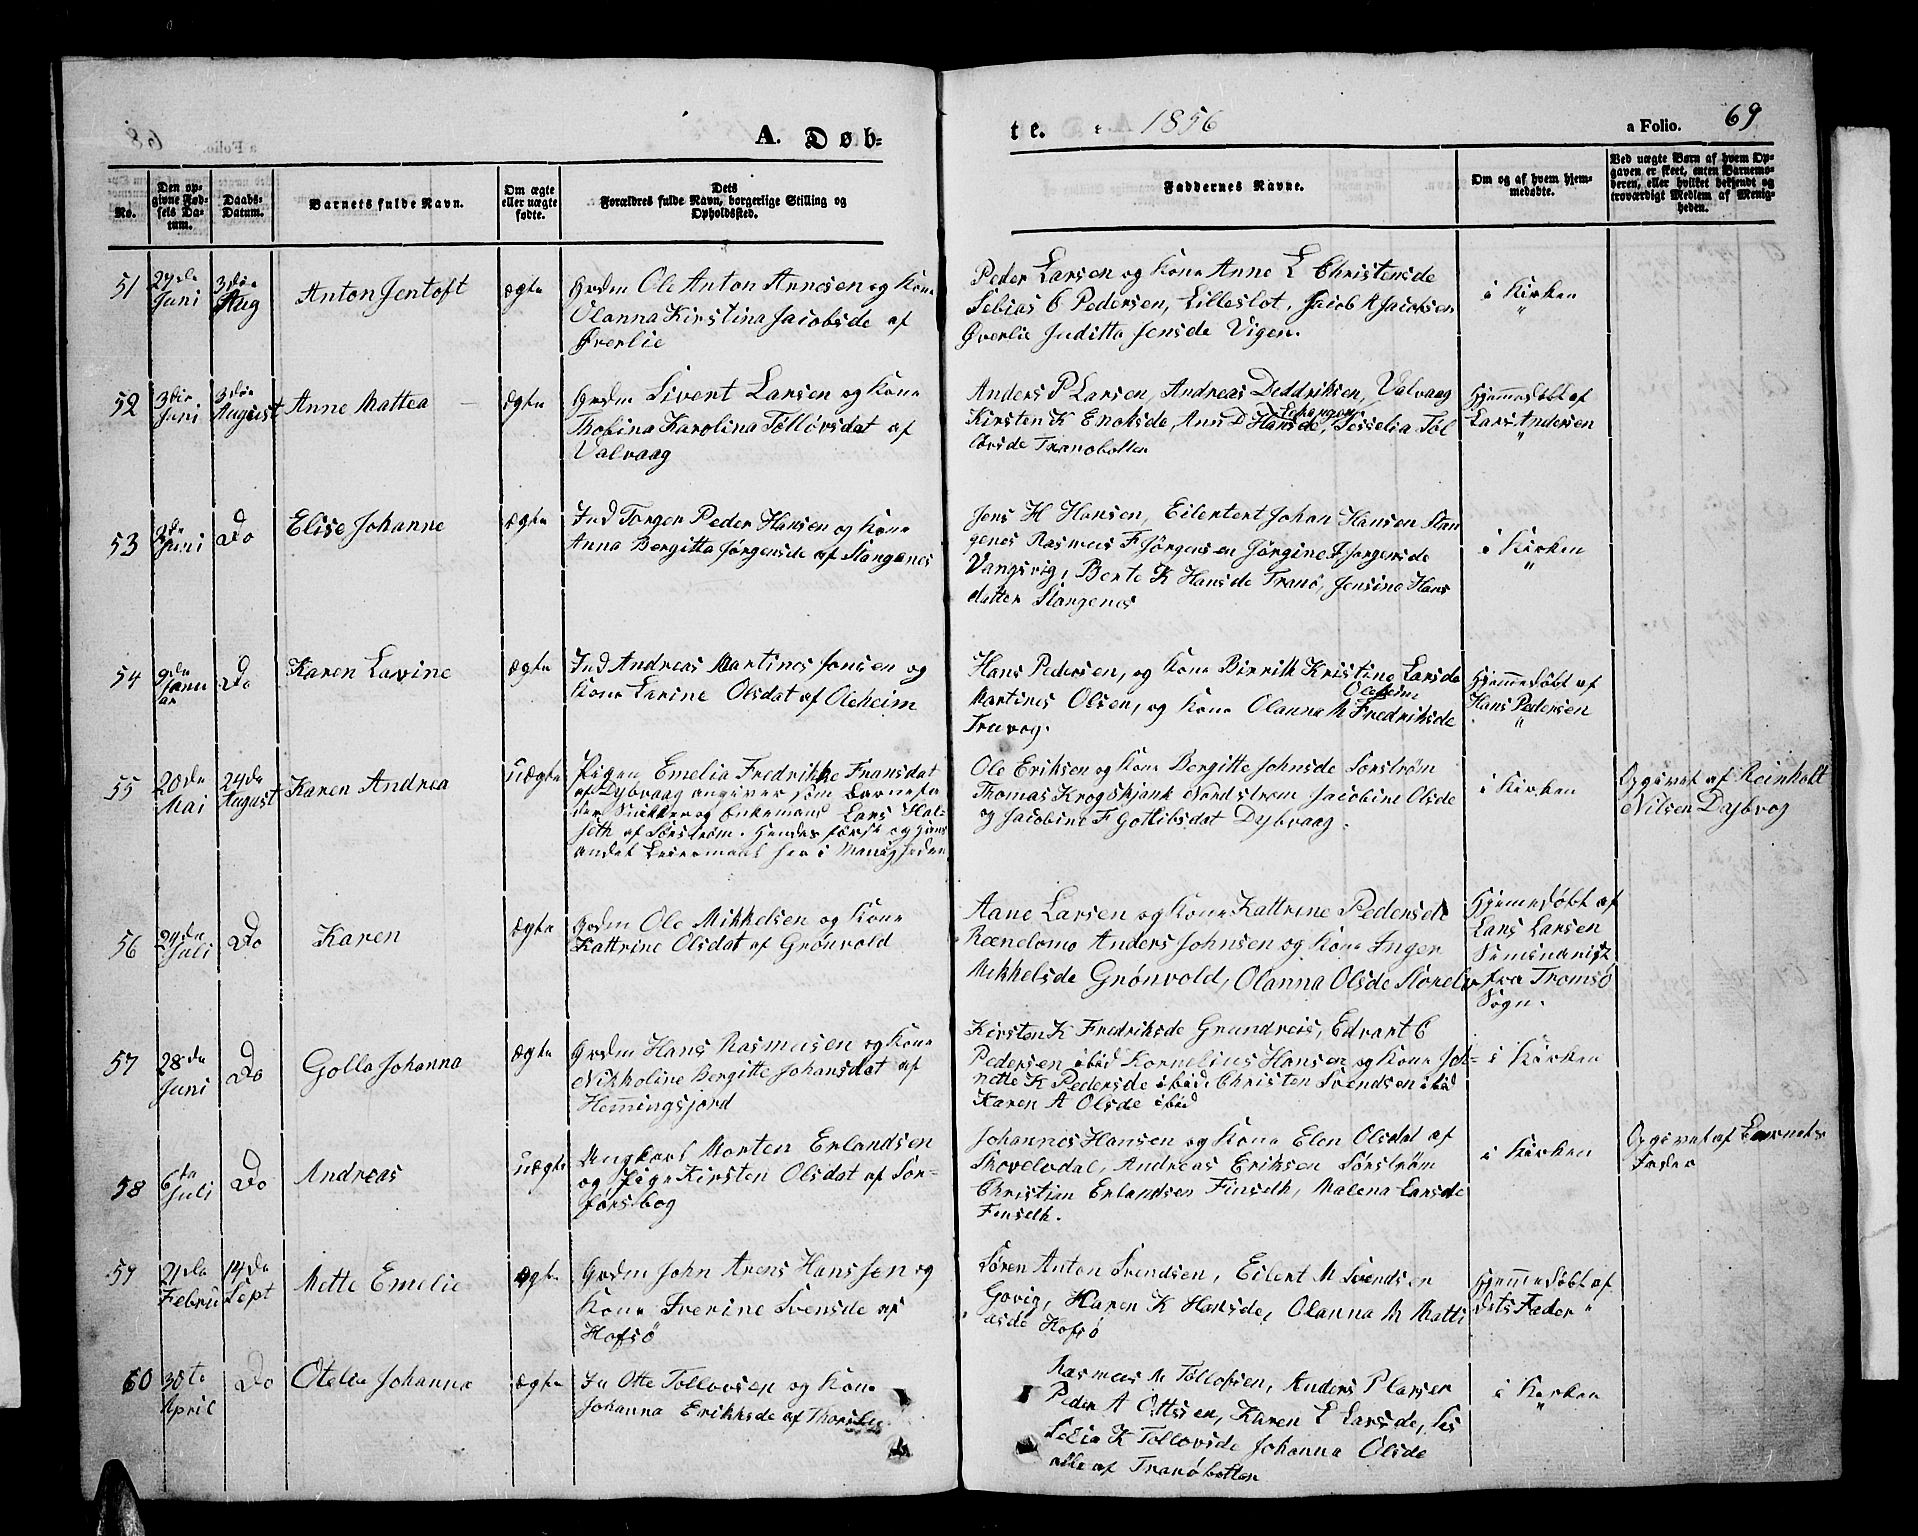 A. Døb-
te. 1856
a Folio. 69
No.
Den op-
givne Fød-
sels Da-
tum.
Daabs-
Datum.
Barnets fulde Navn.
Om ægte
eller uægte
fødte.
Dets
Forældres fulde Navn, borgerlige Stilling og
Opholdssted.
Faddernes Navne.
Om og af hvem hjem-
medøbte.
Ved uægte Børn af hvem Op-
gaven er skeet, enten Barnemo-
deren, eller hvilket bekjendt og
troværdigt Medlem af Menig-
heden.
51
27da
Juni
3die
Aug
Anton Jentoft
ægte
Grdm Ole Anton Arnesen og Kone
Olanna Kirstina Jacobsde af
Øverlie
Peder Larsen og Kone Anne L Christensde
Tebias C Pedersen, Lilleslot, Jacob A Jacobsen
Øverlie Juditta Jensde Vigen.
i Kirken
"
52
3die
Juni
3die
August
Anne Mattea
ægte
Grdm Sivert Larsen og Kone
Thobina Karolina Tollovsdat af
Valvaag
Anders P Larsen, Andreas Deddriksen, Valvaag
Kirsten K Enoksde, Ann D Hansde, Sesselia Tol
lovsde Tranobotten
Hjemmedøbt af
Lars Andersen
"
53
Juni
Do
Elise Johanne
ægte
Ind Torger Peder Hansen og Kone
Anna Bergitta Jørgensde af Stangenes
Jens H Hansen, Eilertert Johan Hansen Stan
genes Rasmus F Jørgensen Jørgine F Jørgensde
Vangsvig, Berte K Hansde Tranø, Jensine Hans
datter Stangenes
i Kirken
"
54
9da
Janu
ar
Do
Karen Lavine
ægte
Ind Andreas Martines Jonsen og
Kone Larine Olsdat af Oleheim
Hans Pedersen, og Kone Birrith Kristine Larsde
Oleheim
Martines Olsen, og Kone Olanna M Fredriksde
Trævog.
Hjemmedøbt af
Hans Pedersen
"
55
20da
Mai
24da
August
Karen Andrea
uægte
Pigen Emelia Fredrikke Fransdat
af Dybvaag angiver som Barnefa
der Snikker og Enkemand Lars Hal-
seth af Sørstrøm. Hendes første og hans
andet Leiermaal her i Menigheden
Ole Eriksen og Kone Bergitte Johnsde Sørstrøm
Thomas Krogskjank Nordstrøm Jacobine Olsde
og Jacobine F Gotlibsdat Dybvaag.
i Kirken
Opgivet af Reinholt
Nilsen Dybvog
56
24da
Juli
Do
Karen
ægte
Grdm Ole Mikkelsen og Kone
Kattrine Olsdat af Grønvold
Aane Larsen og Kone Kattrine Pedersde
Rænelomo Anders Johnsen og Kone Inger
Mikkelsde Grønvold, Olanna Olsde Storelv
Hjemmedøbt af
Lars Larsen
Simenarist
fra Tromsø
Sogn.
57
28da
Juni
Do
Golla Johanna
ægte
Grdm Hans Rasmusen og Kone
Nikholine Bergitte Johansdat af
Hemingsjord
Kirsten K Fredriksde Grundreis, Edvart C
Pedersen ibid Kornelius Hansen og Kone Joh-
nette K Pedersde ibid, Christen Svendsen ibid
Karen A Olsde ibid
i Kirken
58
6ta
Juli
Do
Andreas
uægte
Ungkarl Morten Erlandsen
og Pige Kirsten Olsdat af Sør-
forsbog
Johannes Hansen og Kone Elen Olsdat af
Skovelvdal, Andreas Eriksen Sørstrøm
Christian Erlandsen Finselh, Malena Larsde
Finselh.
i Kirken
Opgivet af Barnets
Fader
59
21da
Febru
14da
Sept
Mette Emelie
ægte
Grdm John Arens Hanssen og
Kone Sverine Svensde af
Hofsø
Søren Anton Svendsen, Eilert M Svendsen
Govig, Haren K Hansde, Olanna M Matti
asde Hofsø
Hjemmedøbt af
dets Fader "
60
30te
April
Do
Otelia Johanna
ægte
In Otte Tollovsen og Kone
Johanna Erikksde af
Rasmus M Tollofsen, Anders P Larsen
Peder A Ottesen, Karen E Larsde, Ses
selia K Tollovsde Johanna Olsde
alle af Tranøbotten
i Kirken
"